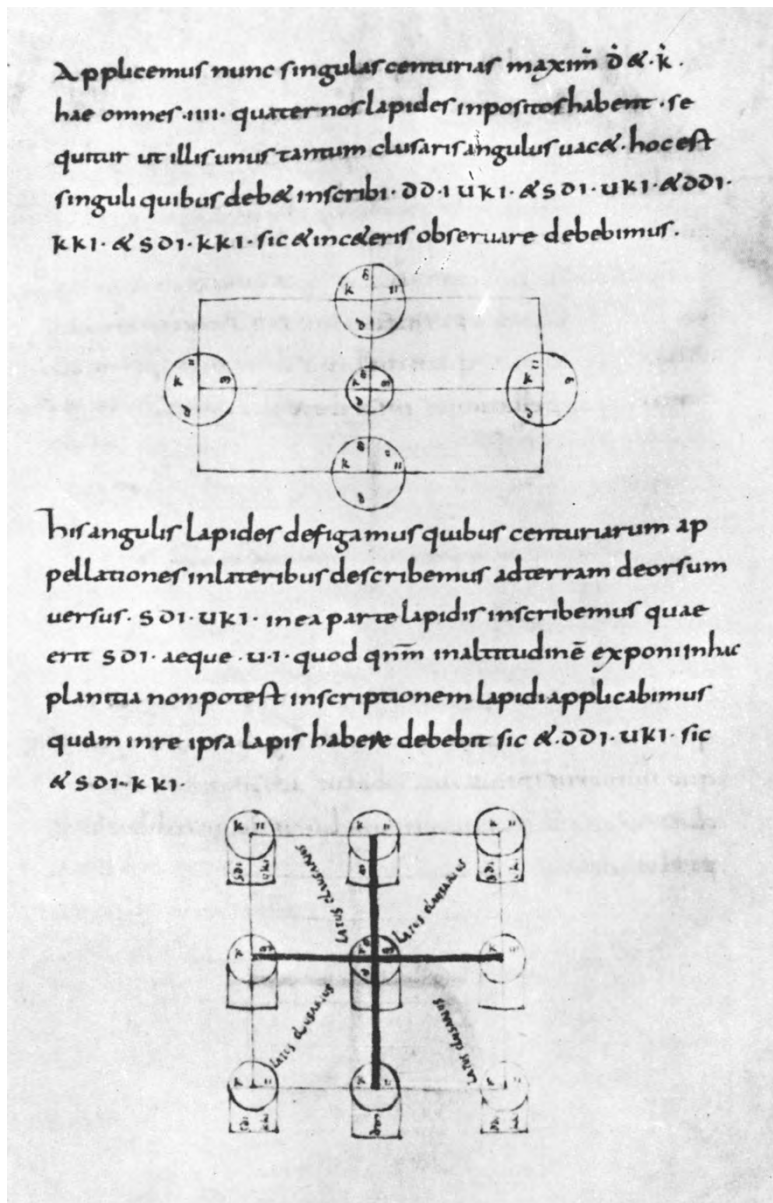 Applicemus nunc singulas centurias maxim̄ d̄ &·k̇·
hae omnes ·IIII· quaternos lapides inpositos habent ·se
quitur ut illis unus tantum clusaris angulus uac&·hoc est
singuli quibus deb& inscribi· DD·I UKI· & SDI· UKI· & DDI·
KKI· & SDI· KKI· sic & inc&eris obseruare debebimus·
K
K
K
K
K
his angulis lapides defigamus quibus centuriarum ap
pellationes inlateribus describemus adterram deorsum
uersus· SDI· UKI· inea parte lapidis inscribemus quae
erit SDI· aeque ·U·I· quod qnm̄ inaltitudinē exponi inhac
planitia nonpotest inscriptionem lapidi applicabimus
quam inre ipsa lapis habere debebit sic &·DDI· UKI· sic
& SDI· KKI·
latus clusaris
latus clusaris
latus clusaris
latus clusaris